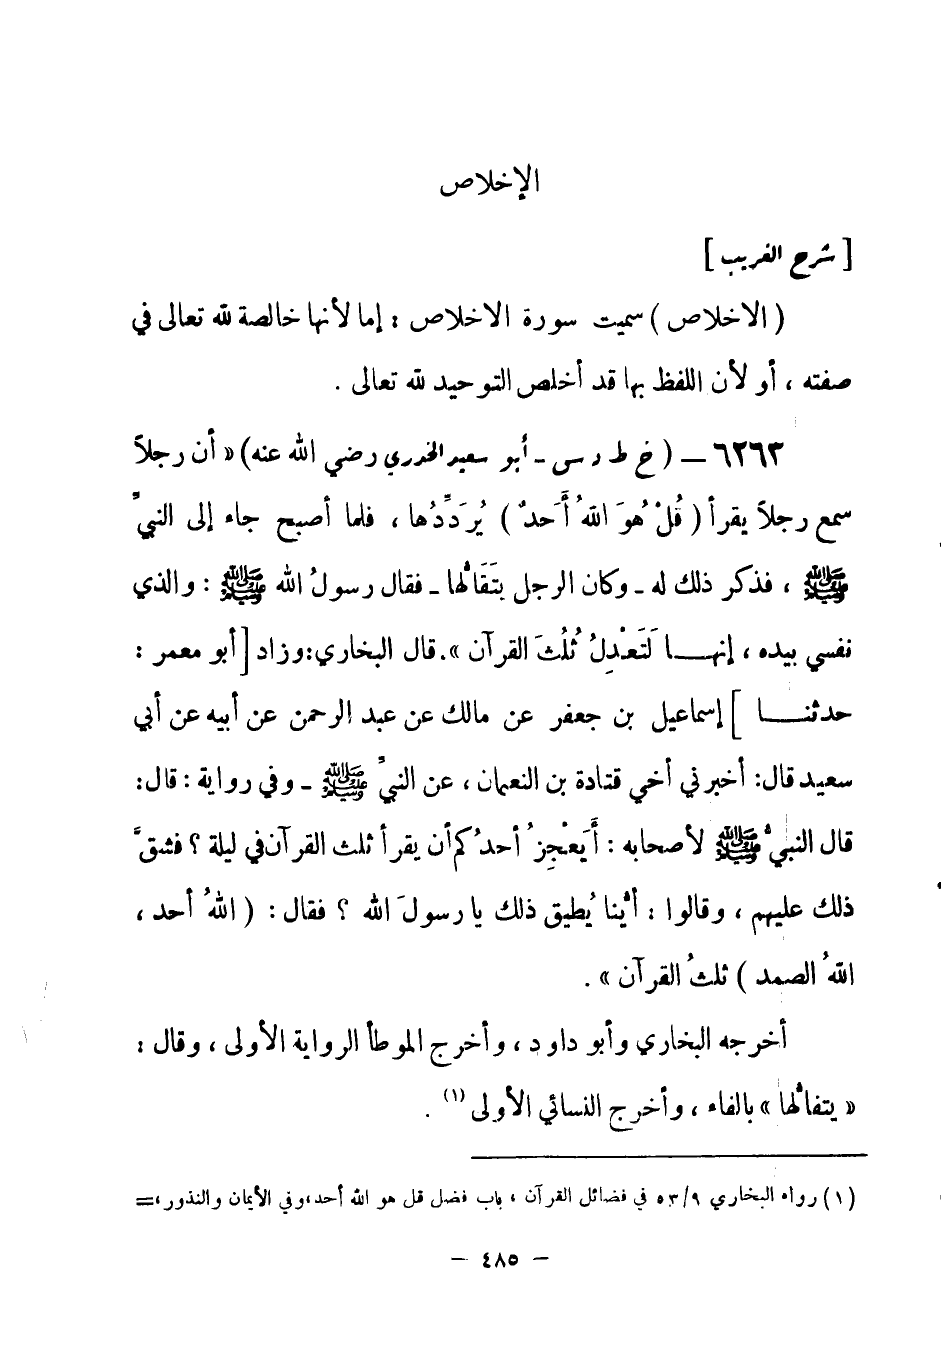 الإخلاص
[ شرح الغريب ]
( الاخلاص ) سميت سورة الاخلاص : إما لأنها خالصة لله تعالى في
صفته ، أو لأن اللفظ بها قد أخلص التوحيد لله تعالى .
٦٢٦٣ – ( خ ط د س - أبو سعيد الخدري رضي الله عنه) « أن رجلاً
سمع رجلاً يقرأ ( قُلْ هُوَ اللهُ أَحَدٌ ) يُرَدِّدُها ، فلما أصبح جاء إلى النبيِّ
ﷺ ، فذكر ذلك له - وكان الرجل يَتَقَالُّها - فقال رسولُ الله ﷺ : والذي
نفسي بيده ، إنهـــا لَتَعْدِلُ ثُلُثَ القرآن ». قال البخاري: وزاد [ أبو معمر :
حدثنـــا ] إسماعيل بن جعفر عن مالك عن عبد الرحمن عن أبيه عن أبي
سعيد قال: أخبرني أخي قتادة بن النعمان ، عن النبيِّ ﷺ - وفي رواية : قال:
قال النبيُّ ﷺ لأصحابه : أَيَعْجِزُ أحدُكم أن يقرأ ثلث القرآن في ليلة ؟ فشقَّ
ذلك عليهم ، وقالوا : أيُّنا يُطيق ذلك يا رسولَ الله ؟ فقال : ( اللهُ أحد ،
اللهُ الصمد ) ثلثُ القرآن » .
أخرجه البخاري وأبو داود ، وأخرج الموطأ الرواية الأولى ، وقال :
« يتفالُّها » بالفاء ، وأخرج النسائي الأولى (١) .
(١) رواه البخاري ٥٣/٩ في فضائل القرآن ، باب فضل قل هو الله أحد ، وفي الأيمان والنذور ، =
– ٤٨٥ –